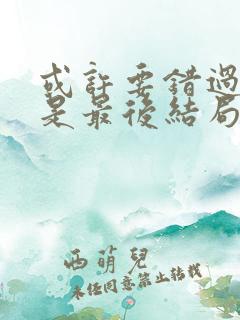 或許要錯過
是最後結局
西萌兒
未经同意禁止转载